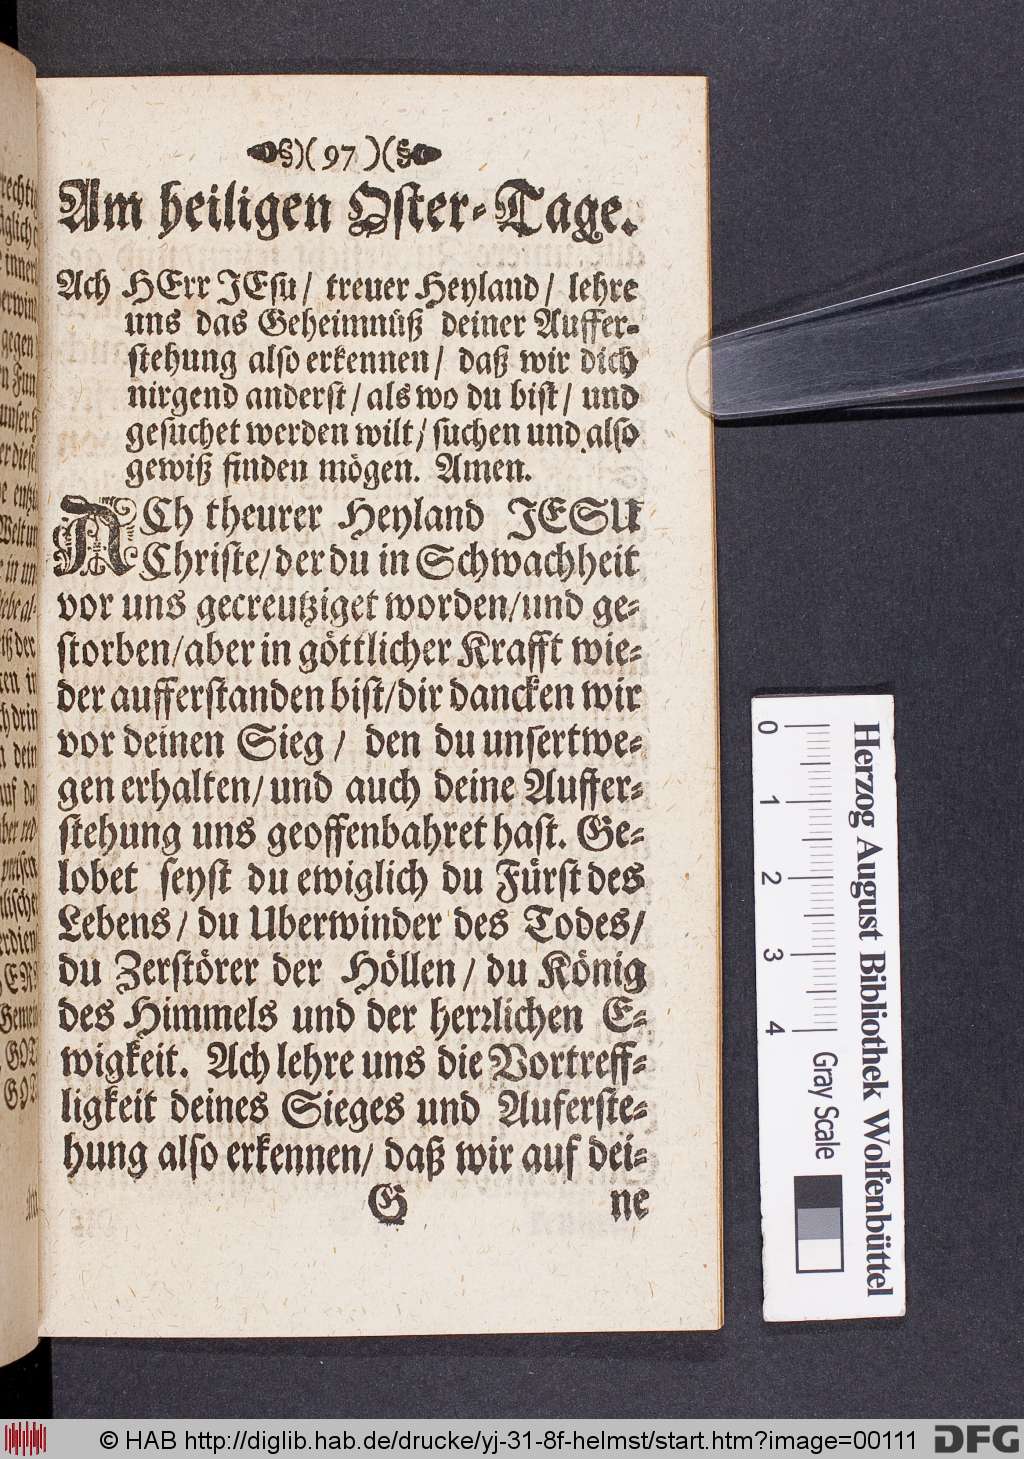 §)( 97 )(§
Am heiligen Oster-Tage.
Ach HErr JEsu/ treuer Heyland/ lehre
uns das Geheimnüß deiner Auffer-
stehung also erkennen/ daß wir dich
nirgend anderst/ als wo du bist/ und
gesuchet werden wilt/ suchen und also
gewiß finden mögen. Amen.
ACh theurer Heyland JESU
Christe/ der du in Schwachheit
vor uns gecreutziget worden/ und ge-
storben/ aber in göttlicher Krafft wie-
der aufferstanden bist/ dir dancken wir
vor deinen Sieg/ den du unsertwe-
gen erhalten/ und auch deine Auffer-
stehung uns geoffenbahret hast. Ge-
lobet seyst du ewiglich du Fürst des
Lebens/ du Uberwinder des Todes/
du Zerstörer der Höllen/ du König
des Himmels und der herrlichen E-
wigkeit. Ach lehre uns die Vortreff-
ligkeit deines Sieges und Auferste-
hung also erkennen/ daß wir auf dei-
G ne
Herzog August Bibliothek Wolfenbüttel
0 1 2 3 4 Gray Scale
© HAB http://diglib.hab.de/drucke/yj-31-8f-helmst/start.htm?image=00111 DFG